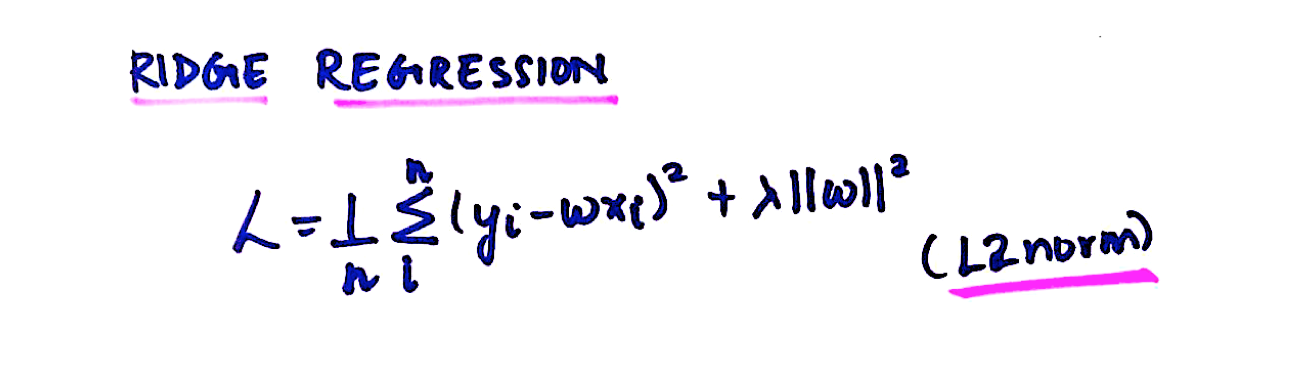 RIDGE REGRESSION
L = 1/n Σ_i^n (yi - wxi)² + λ||w||²
(L2 norm)